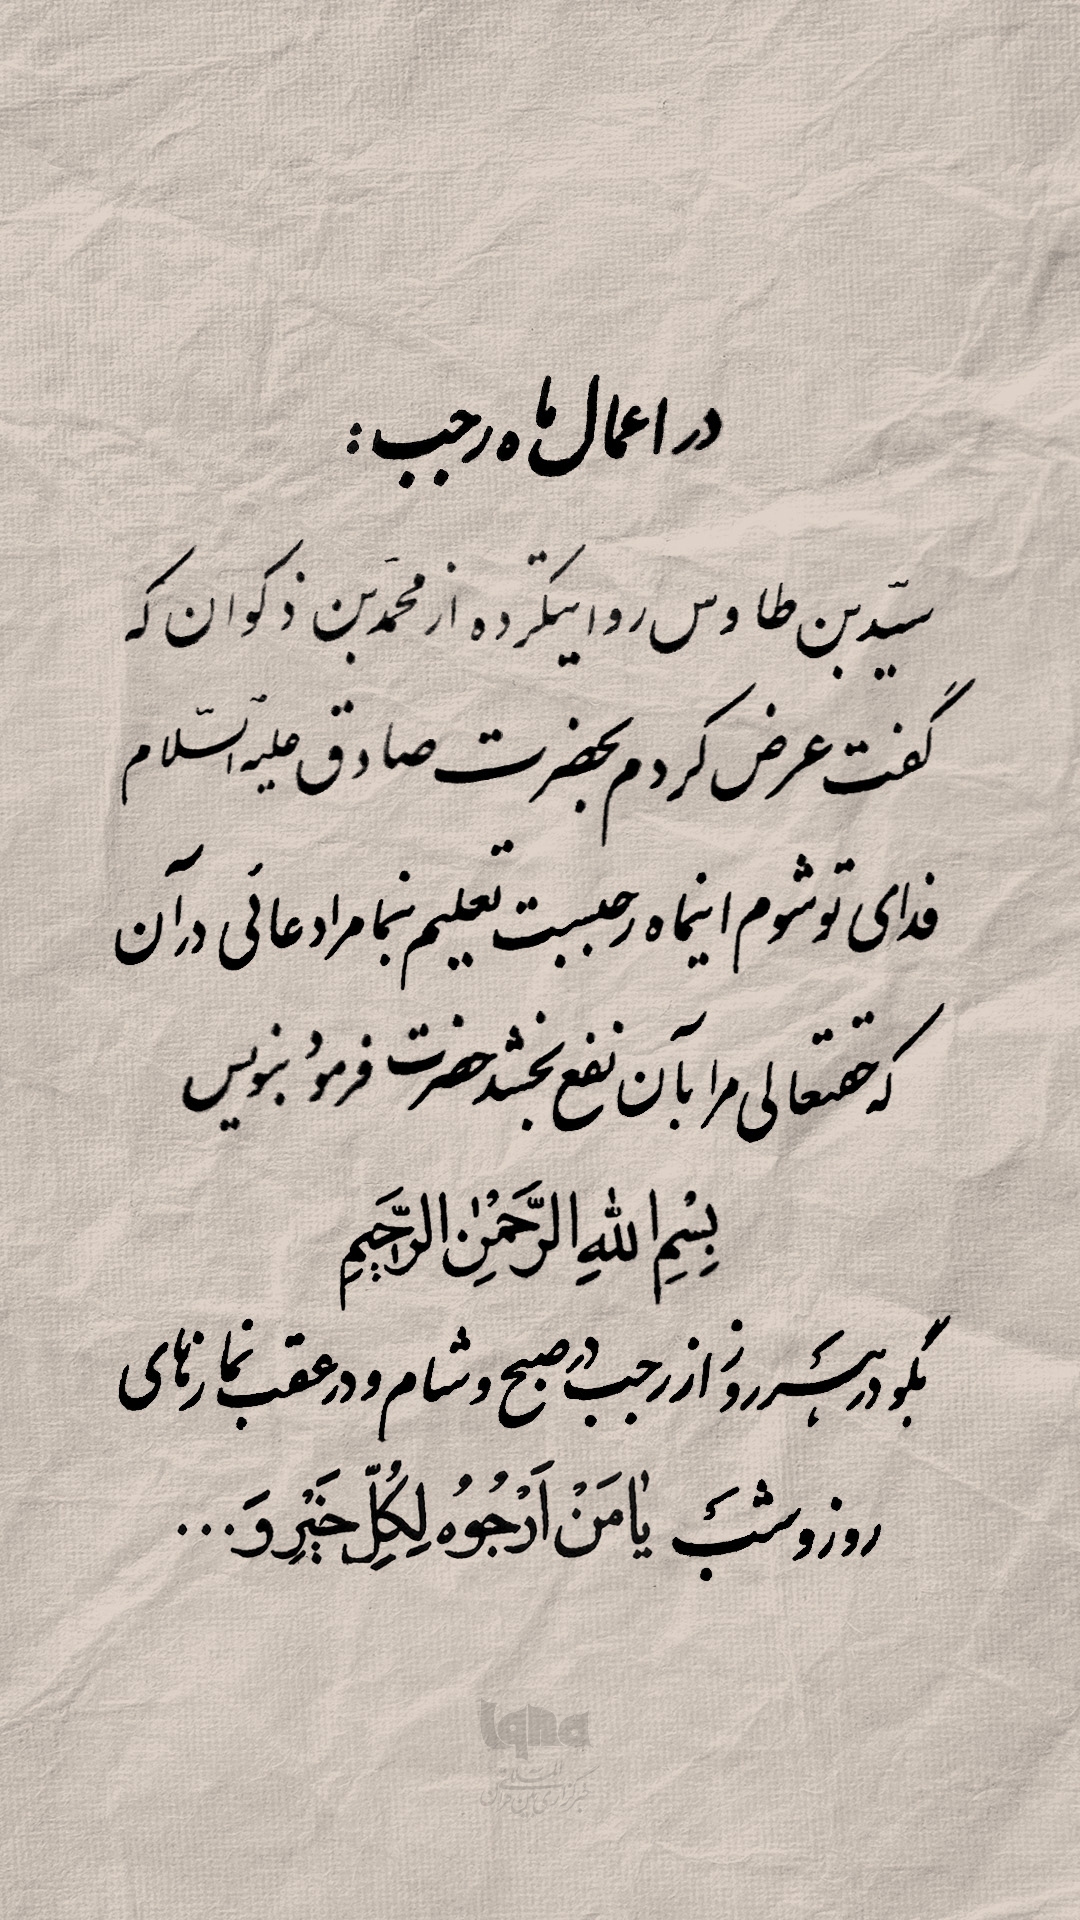 در اعمال ماه رجب:
سیّد بن طاوس روایتکرده از محمّد بن ذکوان که
گفت عرض کردم بحضرت صادق علیه السّلام
فدای تو شوم اینماه رجبست تعلیم بنما مرا دعائی در آن
که حقتعالی مرا بآن نفع بخشد حضرت فرمود بنویس
بِسْمِ اللهِ الرَّحْمٰنِ الرَّحِیمِ
بگو در هر روز از رجب در صبح و شام و در عقب نمازهای
روز و شب یٰا مَنْ اَرْجُوهُ لِکُلِّ خَیْرٍ وَ...
Iqna
خبرگزاری بین المللی قرآن